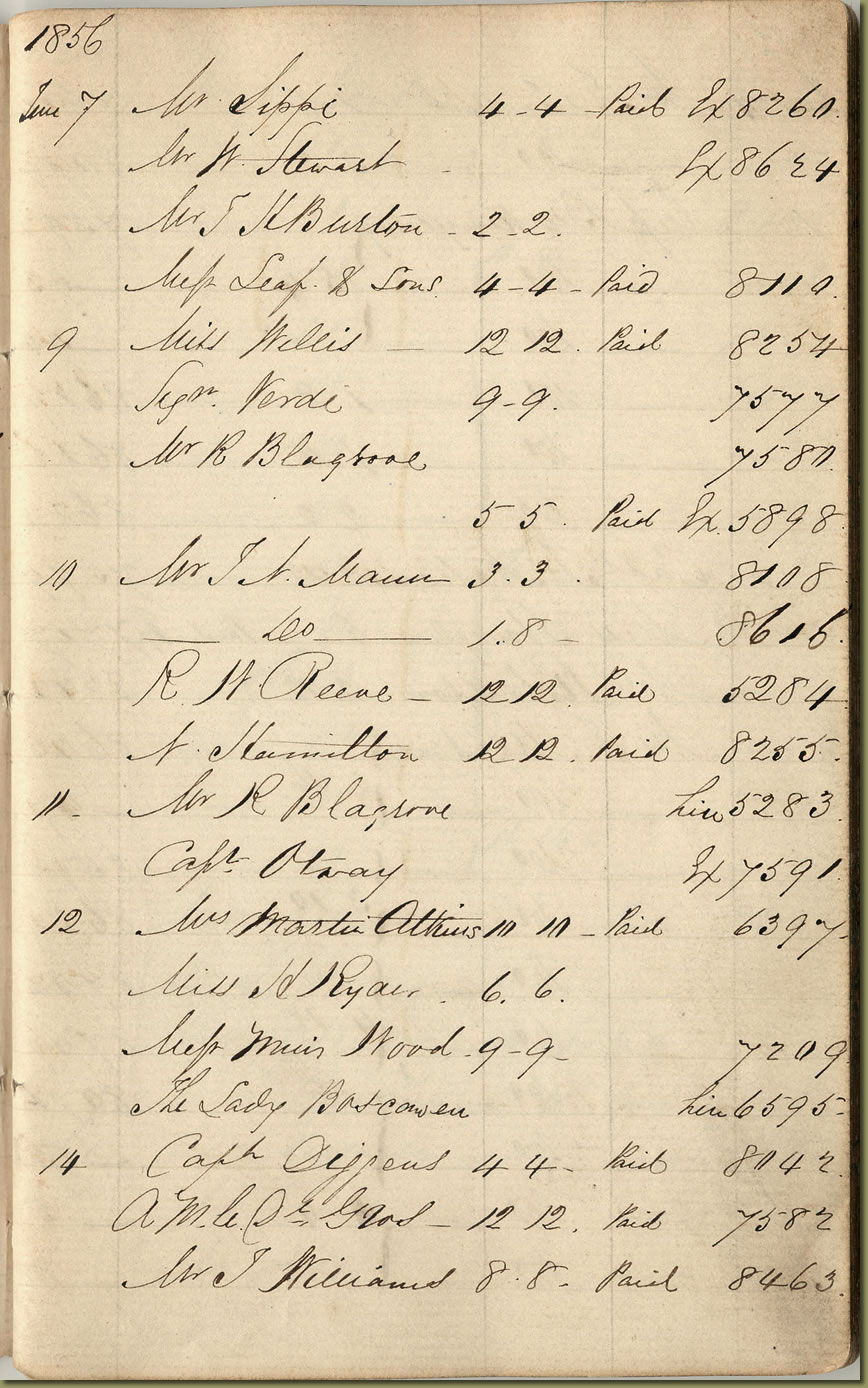 1856
June 7 Mr Lippi 4-4 - Paid Ex 8260.
Mr W. Stewart - Ex 8624
Mr T H Burton - 2-2.
Mess Leaf & Sons 4-4 - Paid 8110.
9 Miss Willis — 12 12. Paid 8254
Sigr. Verdi 9-9. 7577
Mr R Blagrove 7580.
5 5. Paid Ex. 5898
10 Mr T N. Mann 3.3. 8108
— Do — 1.8 - 8616.
R W Reeve - 12 12. Paid 5284
N. Hamilton 12 12. Paid 8255.
11 - Mr R Blagrove hire 5283.
Capt. Otway Ex 7591.
12 Mrs Martin Atkins 10 10 - Paid 6397-
Miss H Ryder. 6. 6.
Mess Muir Wood - 9-9- 7209
The Lady Boscawen hire 6595-
14 Capt Diggens 4 4 - Paid 8042.
A M. C. - 12 12. Paid 7582
Mr J Williams 8.8- Paid 8463.